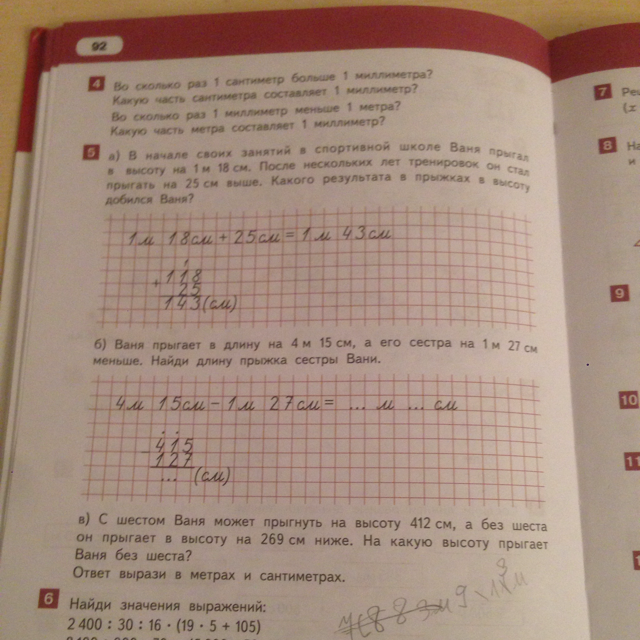 92
4 Во сколько раз 1 сантиметр больше 1 миллиметра?
Какую часть сантиметра составляет 1 миллиметр?
Во сколько раз 1 миллиметр меньше 1 метра?
Какую часть метра составляет 1 миллиметр?
5 а) В начале своих занятий в спортивной школе Ваня прыгал
в высоту на 1 м 18 см. После нескольких лет тренировок он стал
прыгать на 25 см выше. Какого результата в прыжках в высоту
добился Ваня?
1 м 18 см + 25 см = 1 м 43 см
1
+ 118
25
143 (см)
б) Ваня прыгает в длину на 4 м 15 см, а его сестра на 1 м 27 см
меньше. Найди длину прыжка сестры Вани.
4 м 15 см – 1 м 27 см = ... м ... см
. .
– 415
127
... (см)
в) С шестом Ваня может прыгнуть на высоту 412 см, а без шеста
он прыгает в высоту на 269 см ниже. На какую высоту прыгает
Ваня без шеста?
Ответ вырази в метрах и сантиметрах.
6 Найди значения выражений:
2 400 : 30 : 16 · (19 · 5 + 105)
7 Реш
(x
8 На
и
9
10
11